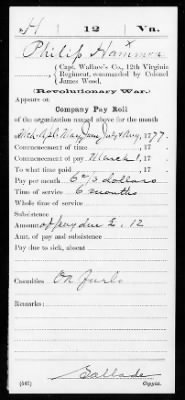 H 12 Va.
Philip Hammon
(Capt. Wallace's Co., 12th Virginia
Regiment, commanded by Colonel
James Wood.
(Revolutionary War.)
Appears on
Company Pay Roll
of the organization named above for the month
Mch Apl May June July & Aug, 1777.
Commencement of time, 17
Commencement of pay March 1, 17
To what time paid, 17
Pay per month 6 2/3 dollars
Time of service 6 months
Whole time of service
Subsistence
Amount of pay due £. 12
Amt. of pay and subsistence
Pay due to sick, absent
Casualties On Furlo
Remarks:
Ballade
Copyist.